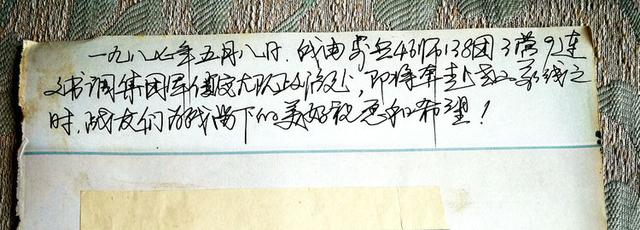 一九八七年五月八日，我由步兵46师138团3营9连
文书调集团军侦察大队政治处，即将奔赴老山前线之
时，战友们为我留下的美好祝愿和希望！